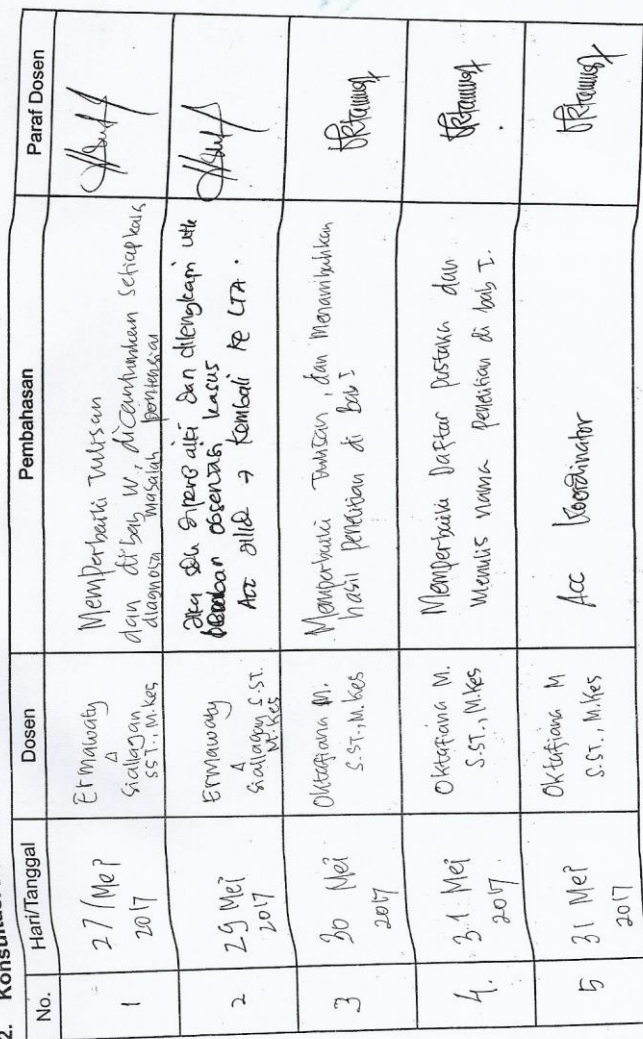 2. Konsultasi
No. Hari/Tanggal Dosen Pembahasan Paraf Dosen
1 27/Mei 2017 Ermawaty Siallagan SST., M.Kes
Memperbaiki Tulisan
dan di bab IV, dicantumkan setiap kala
diagnosa masalah pontensial
2 29 Mei 2017 Ermawaty Siallagan S.ST. M.Kes
Jika sdh diperbaiki dan dilengkapi utk
observasi kasus
Acc → kembali ke LTA.
3 30 Mei 2017 Oktafiana M. S.ST., M.Kes
Memperbaiki Tulisan, dan Menambahkan
hasil penelitian di Bab I
4. 31 Mei 2017. Oktafiana M. S.ST., M.Kes
Memperbaiki Daftar Pustaka dan
Menulis nama penelitian di bab I.
5 31 Mei 2017 Oktafiana M S.ST., M.Kes
Acc Koordinator